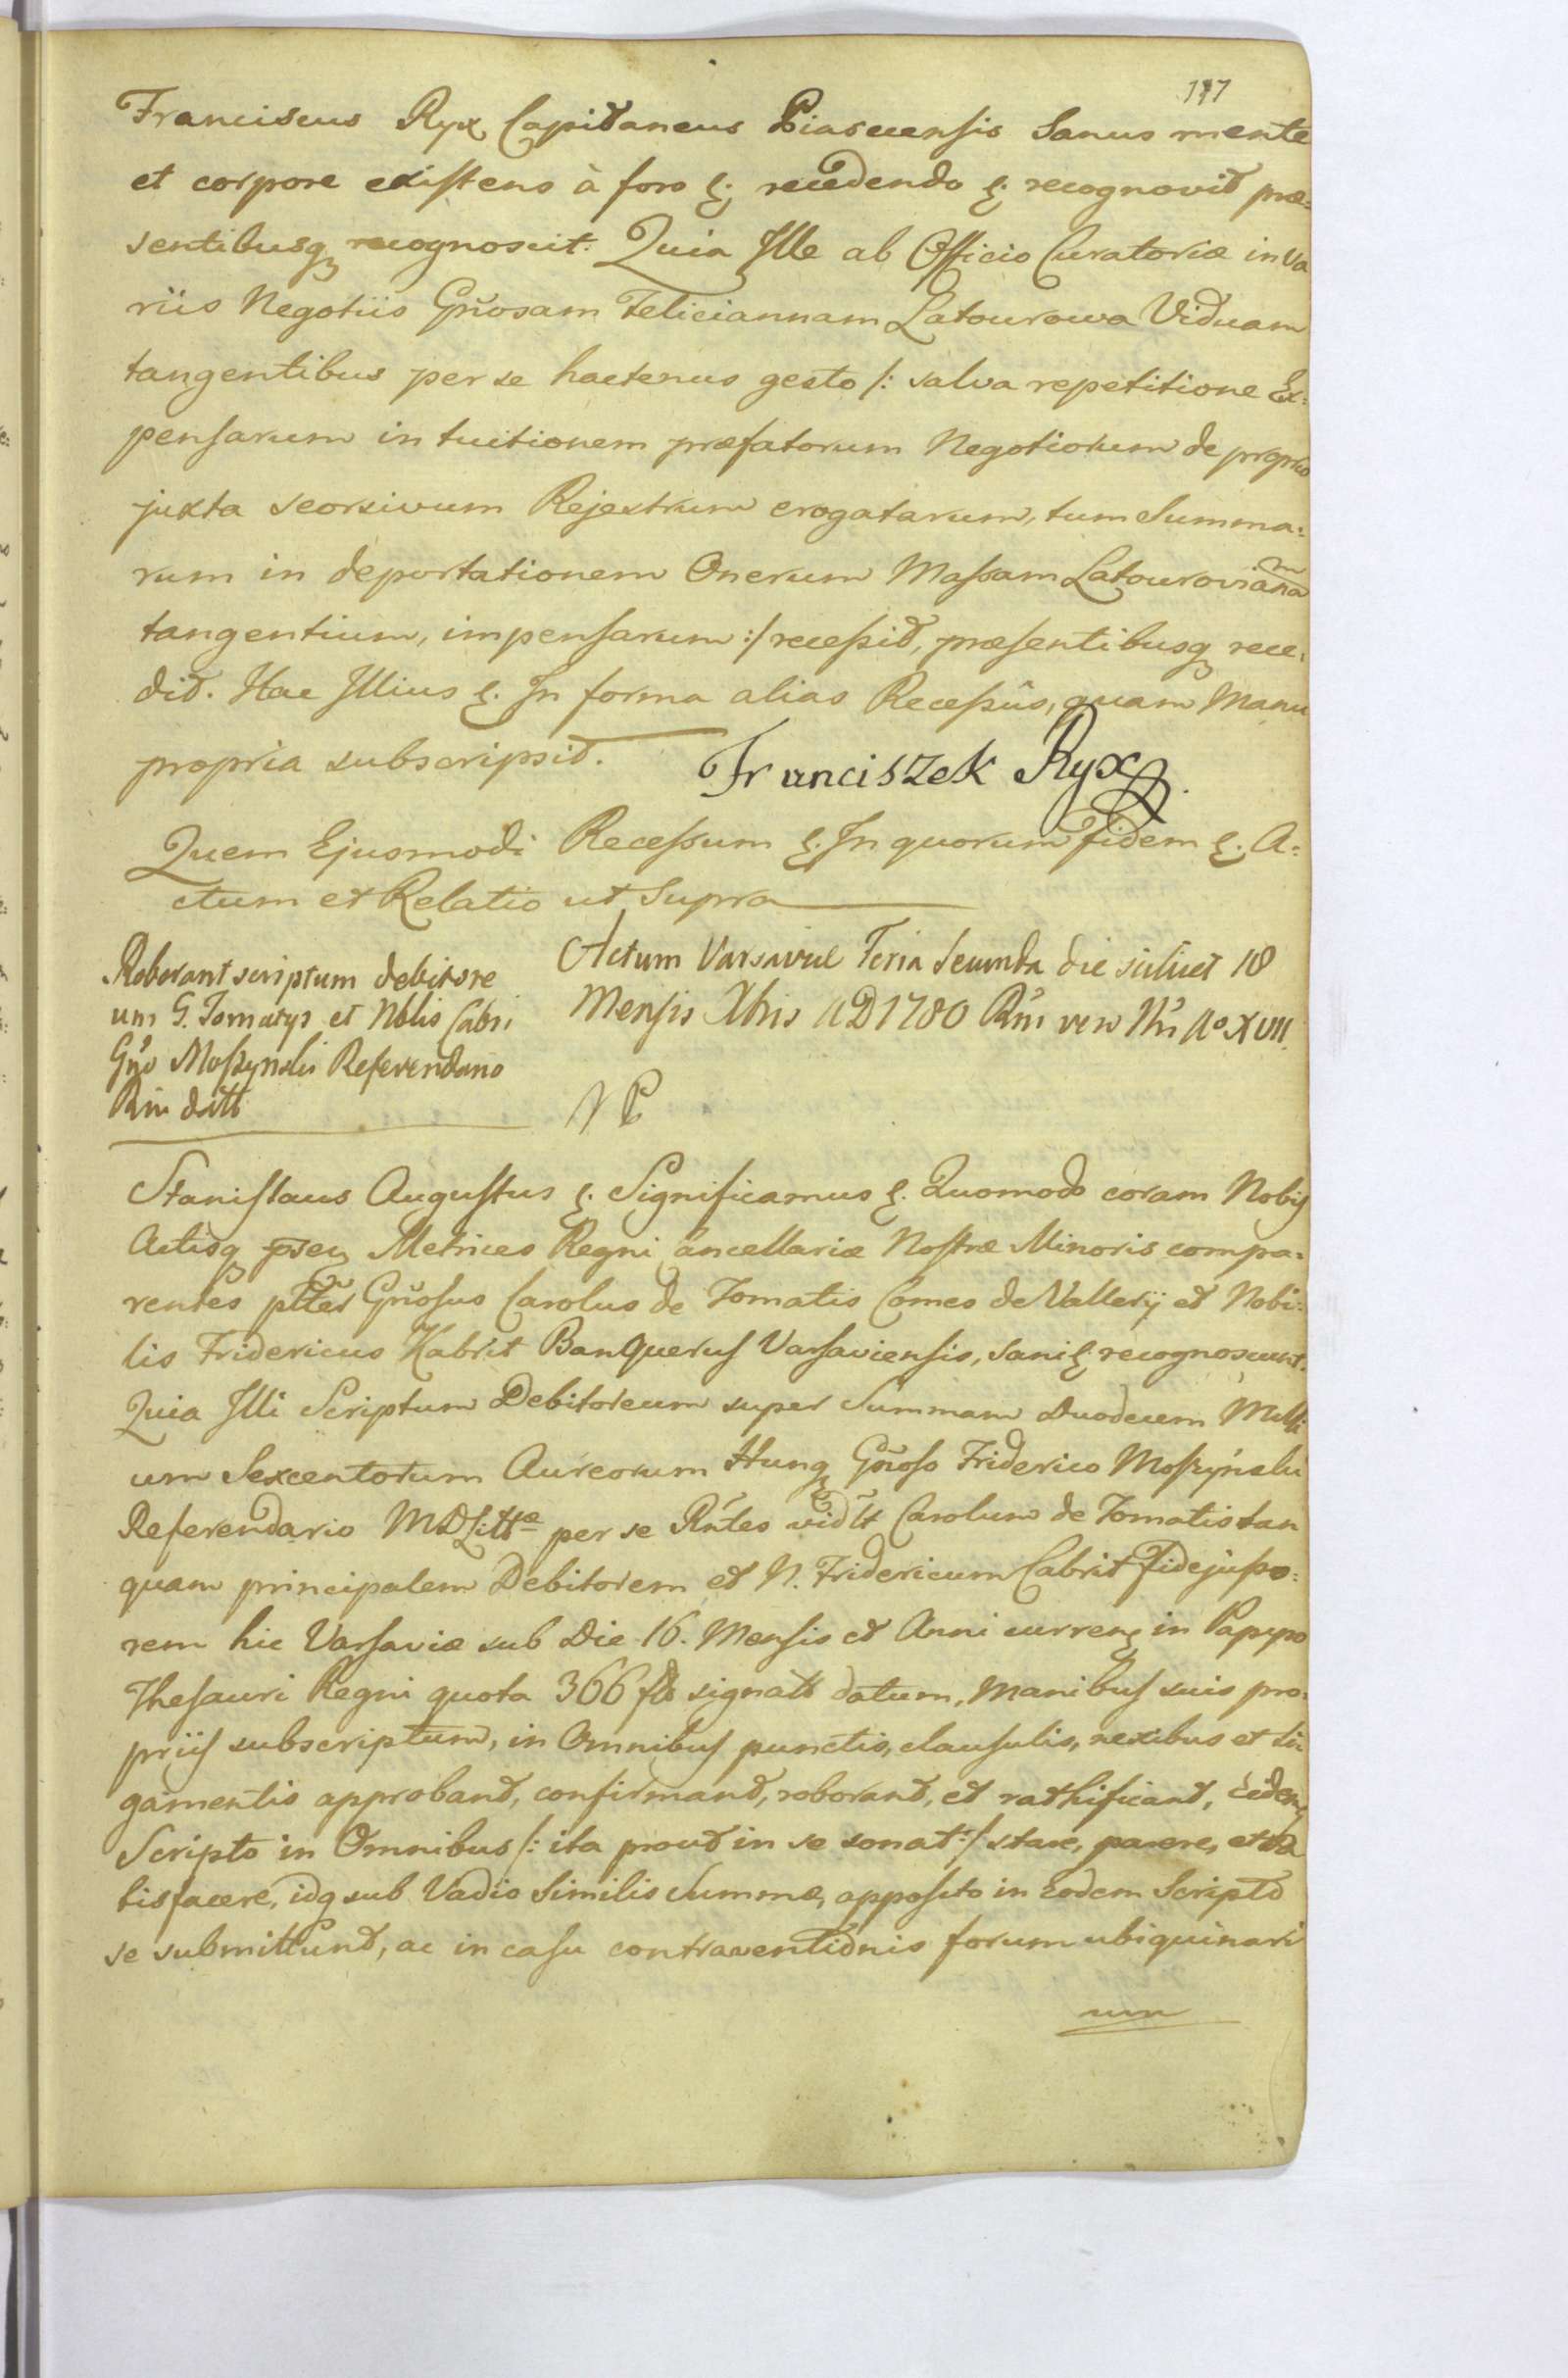 117
Franciscus Ryx Capitaneus Piasecensis Sanus mente
et corpore existens à foro &. recedendo &. recognovit præ=
sentibusq recognoscit. Quia Ille ab Officio Curatoriæ in va
riis Negotiis Gnosam Feliciannam Latourowa Viduam
tangentibus per se hactenus gesto /: salva repetitione Ex=
pensarum in tuitionem præfatorum Negotiorum de proprio
juxta seorsivum Rejestrum erogatarum, tum Summa=
rum in deportationem Onerum Massam Latourovianam
tangentium, impensarum :/ recessit, præsentibusq rece=
dit. Hac Illius &. In forma alias Recessûs, quam Manu
propria subscripsit.
Franciszek Ryx
Quem Ejusmodi Recessum &. In quorum Fidem &. A=
ctum et Relatio ut Supra
Roborant scriptum debitore
um G. Tomatys et Nblis Cabri
Gñso Moszynski Referendario
Rni datt
Actum Varsaviæ Feria Secunda die scilicet 18
Mensis Xbris AD 1780 Rni vero Nri Ao XVII
Stanislaus Augustus &. Significamus &. Quomodo coram Nobis
Actisq psen Metrices Regni Cancellariæ Nostræ Minoris compa=
rentes pltes Gnosus Carolus de Tomatis Comes de Vallerij et Nobi=
lis Fridericus Kabrit Banquerus Varsaviensis, sani &. recognoscunt.
Quia Illi Scriptum Debitoreum super Summam Duodecem Milli
um Sexcentorum Aureorum Hung Gnoso Friderico Moszyński
Referendario MDLittæ per se Rntes vidlt Carolum de Tomatis tan
quam principalem Debitorem et N. Fridericum Cabrit Fidejusso=
rem hic Varsaviæ sub Die 16. Mensis et Anni curren in Papyro
Thesauri Regni quota 366 fl signatt datum, Manibus suis pro=
priis subscriptum, in Omnibus punctis, clausulis, nexibus et li
gamentis approbant, confirmant, roborant, et rathificant, Eidemq
Scripto in Omnibus /: ita prout in se sonat :/ stare, parere, et sa
tisfacere, idq sub Vadio Similis Summæ, apposito in eodem Scripto
se submittunt, ac in casu contraventionis forum ubiquinari
um